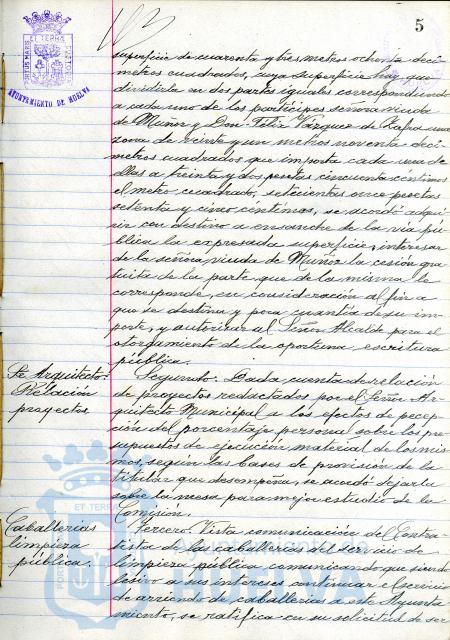 5
PORTUS MARIS ET TERRÆ CUSTODIA
AYUNTAMIENTO DE HUELVA
superficie de cuarenta y tres metros ochenta decí-
metros cuadrados, cuya superficie hay que
dividirla en dos partes iguales correspondiendo
a cada uno de los partícipes señora viuda
de Muñoz y Don Felix Vázquez de Zafra una
zona de veinte y un metros noventa decí-
metros cuadrados que importa cada una de
ellas a treinta y dos pesetas cincuenta céntimos
el metro cuadrado, setecientas once pesetas
setenta y cinco céntimos, se acordó adqui-
rir con destino a ensanche de la vía pú-
blica la expresada superficie, interesar
de la señora viuda de Muñoz la cesión gra-
tuita de la parte que de la misma le
corresponde, en consideración al fin a
que se destina y poca cuantía de su im-
porte, y autorizar al Señor Alcalde para el
otorgamiento de la oportuna escritura
pública.
Sr Arquitecto:
Relación
proyectos
Segundo: Dada cuenta de relación
de proyectos redactados por el Señor Ar-
quitecto Municipal a los efectos de percep-
ción del porcentaje personal sobre los pre-
supuestos de ejecución material de los mis-
mos, según las bases de provisión de la
titular que desempeña, se acordó dejarlo
sobre la mesa para mejor estudio de la
Comisión.
Caballerias
limpieza
pública.
Tercero: Vista comunicación del Contra-
tista de las caballerías del servicio de
limpieza pública comunicando que siendo
lesivo a sus intereses continuar el servicio
de arriendo de caballerías a este Ayunta-
miento, se ratifica en su solicitud de ser